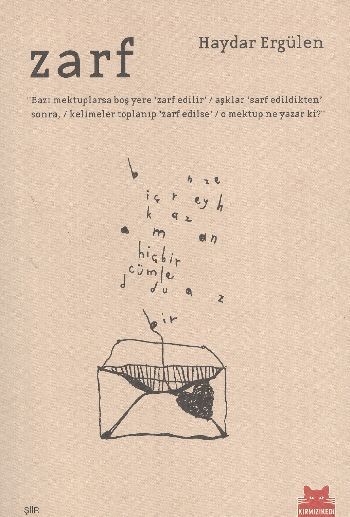 Haydar Ergülen
zarf
"Bazı mektuplarsa boş yere 'zarf edilir' / aşklar 'sarf edildikten'
sonra, / kelimeler toplanıp 'zarf edilse' / o mektup ne yazar ki?"
b n z e
i ç r e y h
k a z
a m a n
hiçbir
cümle
d d u a z
bir
ŞİİR
KIRMIZIKEDİ